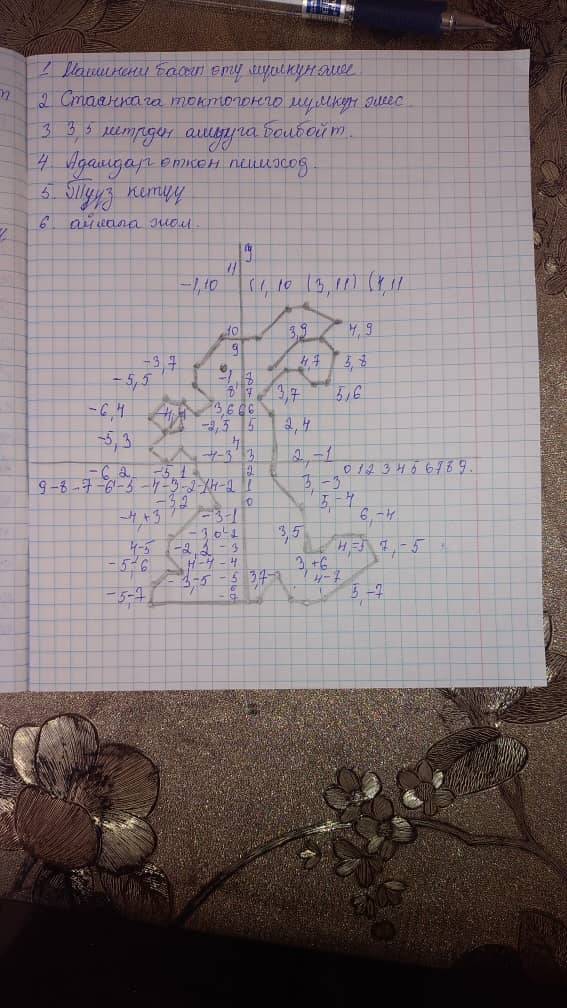 1 Машинени басып оту мумкун эмес.
2 Стаянкага токтогонго мумкун эмес
3 3,5 метрден ашууга болбойт.
4. Адамдар откон пешеход.
5. Тууз кетуу
6. айлала жол.
у
11
-1,10 (1,10 (3,11) (4,11
10 3,9 4,9
9
-3,7 4,7 5,8
-5,5 -1, 8
8, 7 3,7 5,6
-6,4 -4,4 3,6 6 6
-2,5 5 2,4
-5,3 4
-4-3 3 2,-1
-6,2 -5,1 2 0 1 2 3 4 5 6 7 8 9.
9-8-7-6-5-4-3-2-14-2 1 3,-3
-3,2 0 5,-4
-4,+3 -3-1 6,-4
-3,0-2 3,5
4-5 -2,2 -3 4,=5 7,-5
-5,-6 4-4-4 3,+6
-3,-5 -5 3,7 4-7
-5,-7 -7 5,-7